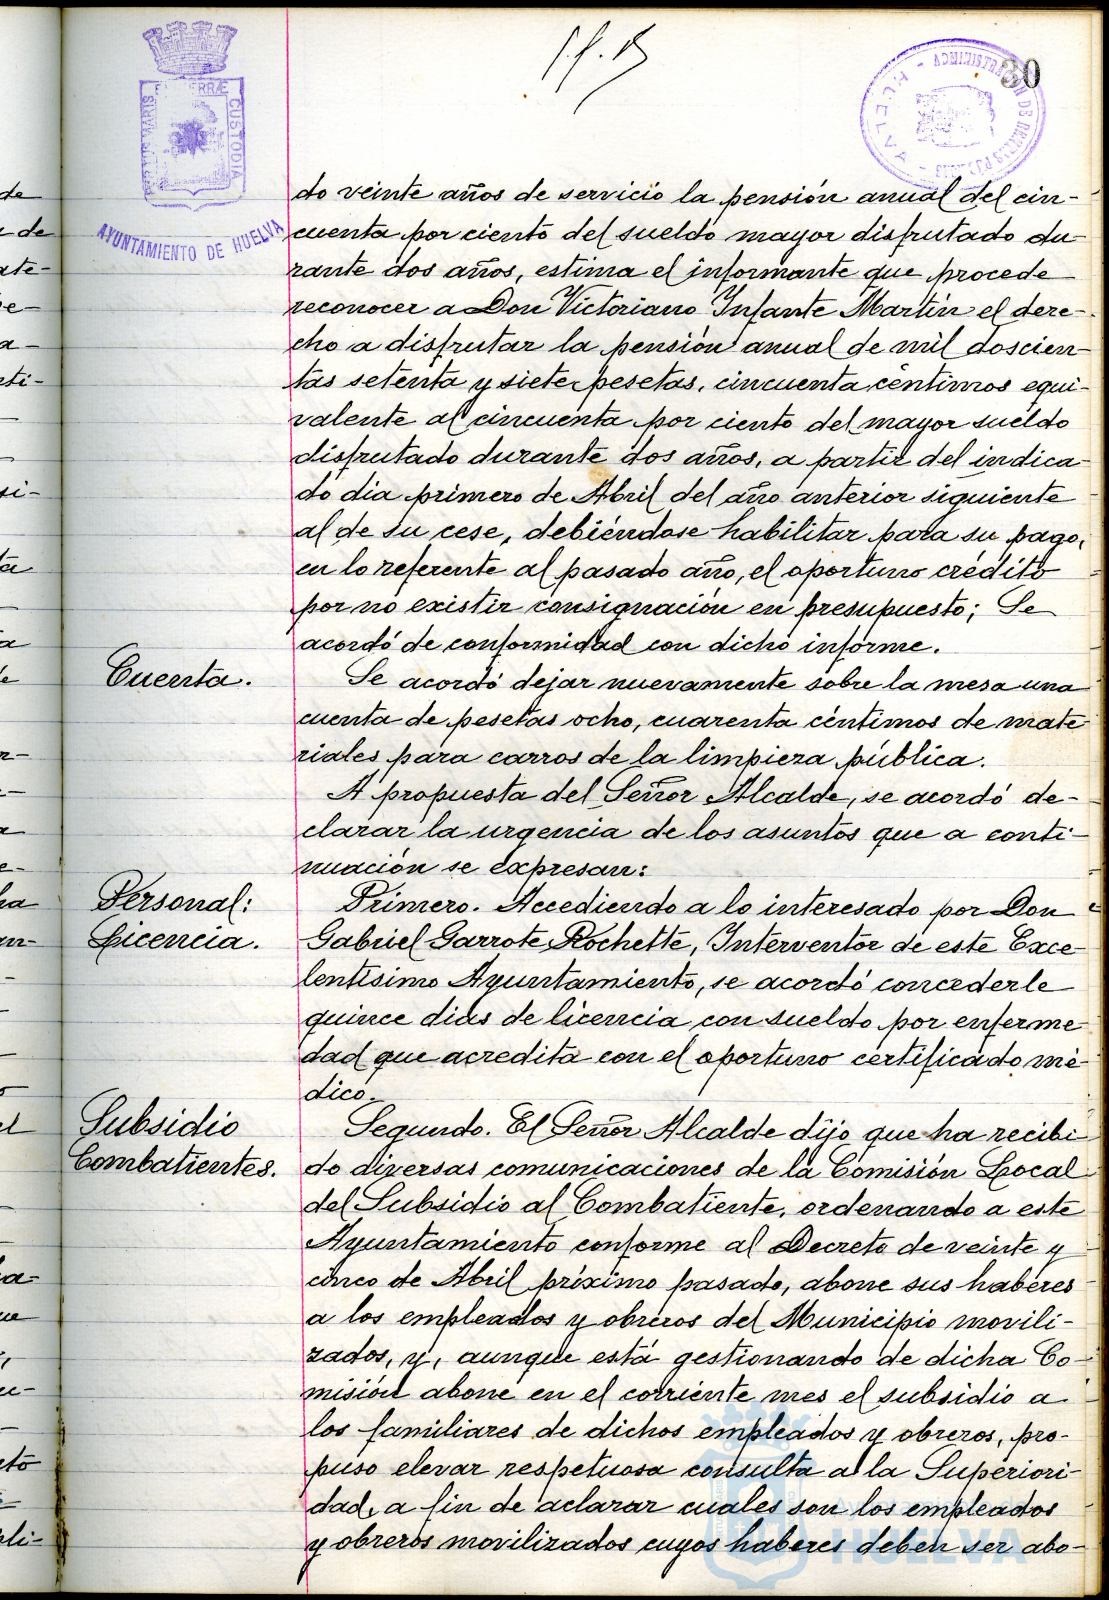 30
AYUNTAMIENTO DE HUELVA
do veinte años de servicio la pensión anual del cin-
cuenta por ciento del sueldo mayor disfrutado du-
rante dos años, estima el informante que procede
reconocer a Don Victoriano Infante Martín el dere-
cho a disfrutar la pensión anual de mil doscien-
tas setenta y siete pesetas, cincuenta céntimos equi-
valente al cincuenta por ciento del mayor sueldo
disfrutado durante dos años, a partir del indica-
do dia primero de Abril del año anterior siguiente
al de su cese, debiéndose habilitar para su pago,
en lo referente al pasado año, el oportuno crédito
por no existir consignación en presupuesto; Se
acordó de conformidad con dicho informe.
Cuenta.
Se acordó dejar nuevamente sobre la mesa una
cuenta de pesetas ocho, cuarenta céntimos de mate
riales para carros de la limpieza pública.
A propuesta del Señor Alcalde, se acordó de-
clarar la urgencia de los asuntos que a conti-
nuación se expresan:
Personal:
Licencia.
Primero. Accediendo a lo interesado por Don
Gabriel Garrote Rochette, Interventor de este Exce-
lentísimo Ayuntamiento, se acordó concederle
quince dias de licencia con sueldo por enferme
dad que acredita con el oportuno certificado mé-
dico.
Subsidio
Combatientes.
Segundo. El Señor Alcalde dijo que ha recibi
do diversas comunicaciones de la Comisión Local
del Subsidio al Combatiente, ordenando a este
Ayuntamiento conforme al Decreto de veinte y
cinco de Abril próximo pasado, abone sus haberes
a los empleados y obreros del Municipio movili-
zados, y, aunque está gestionando de dicha Co-
misión abone en el corriente mes el subsidio a
los familiares de dichos empleados y obreros, pro-
puso elevar respetuosa consulta a la Superiori-
dad, a fin de aclarar cuales son los empleados
y obreros movilizados cuyos haberes deben ser abo-
HUELVA